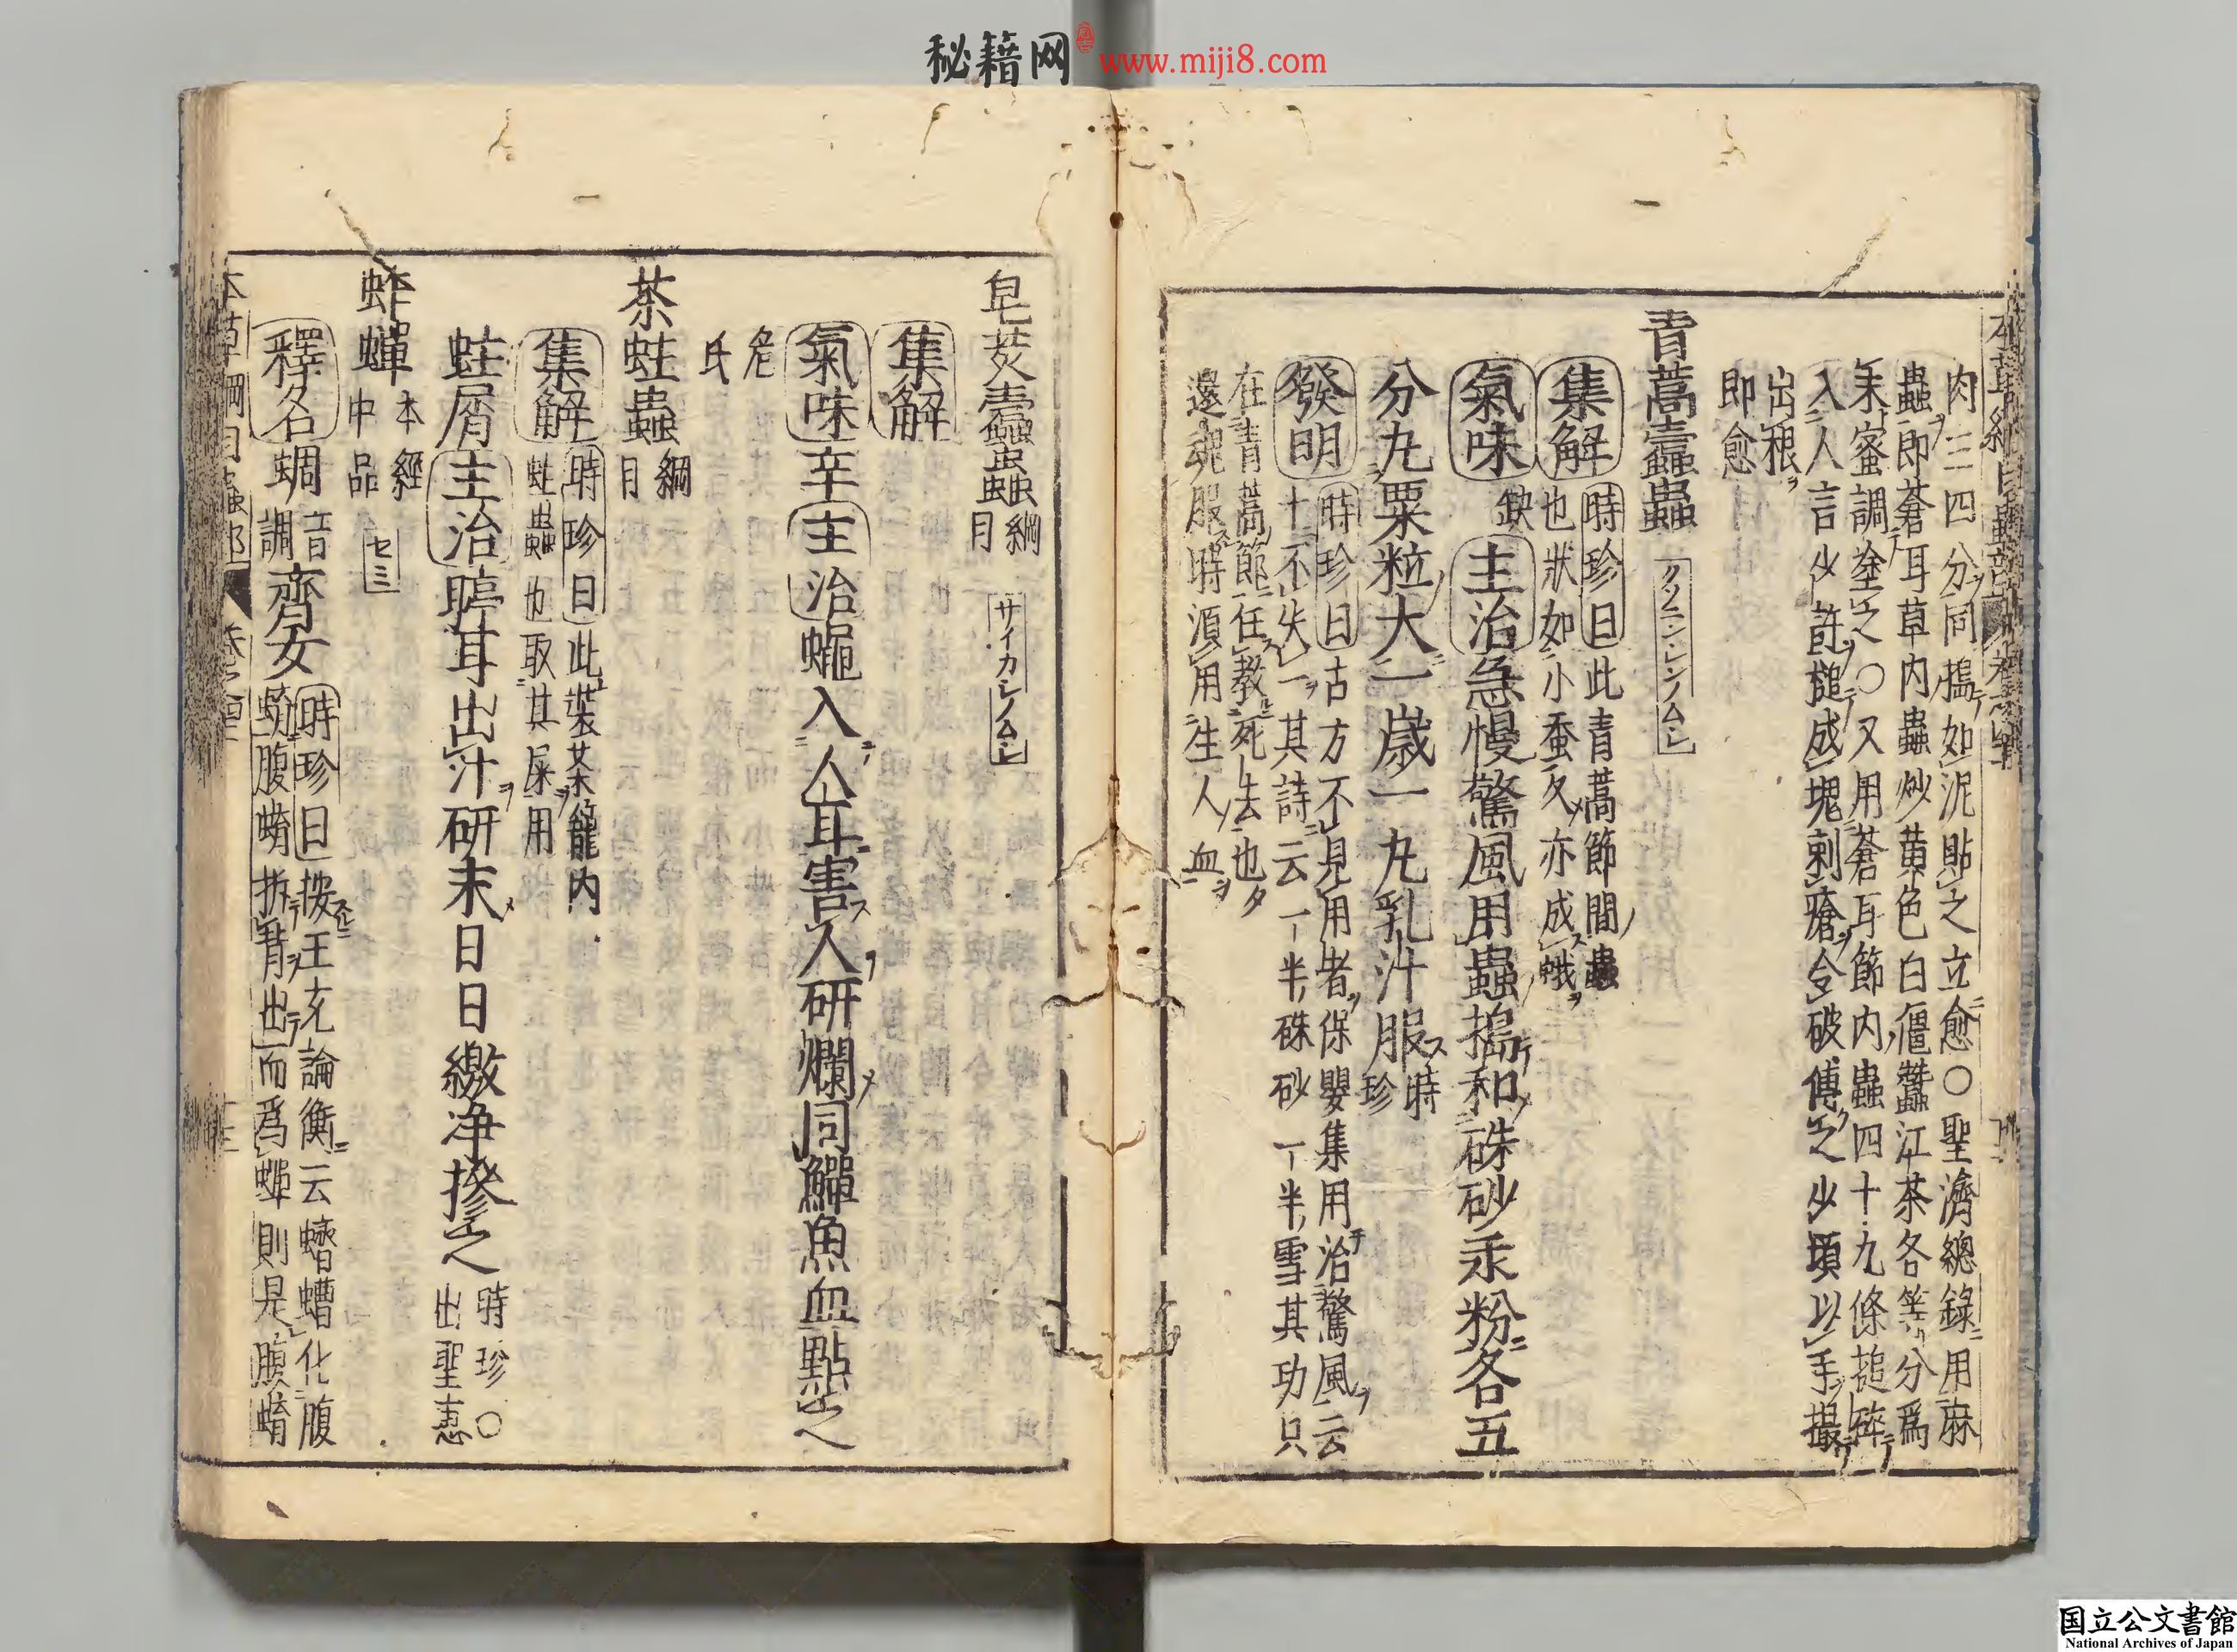 秘籍网 www.miji8.com
肉三四分同搗如泥貼之立愈〇聖濟總錄用麻
蟲即蒼耳草内蟲炒黄色白僵蠶江茶各等分爲
末蜜調塗之〇又用蒼耳節内蟲四十九條搥碎
入人言少許搥成塊刺瘡令破傅之少頃以手撮
出根
即愈
青蒿蠹蟲 綱目 クソニンジンノムシ
集解 時珍曰此青蒿節間蟲
也狀如小蚕久亦成蛾
氣味 缺 主治 急慢驚風用蟲搗和硃砂汞粉各五
分丸粟粒大一歲一丸乳汁服 時珍
發明 時珍曰古方不見用者保嬰集用治驚風云
十不失一其詩云一半硃砂一半雪其功只
在青蒿節任教死去也
還魂服時須用生人血
皂莢蠹蟲 綱目 サイカシノムシ
集解
氣味 辛 主治 蠅入人耳害人研爛同鱓魚血點之
危氏
茶蛀蟲 綱目
集解 時珍曰此裝茶籠内
蛀蟲也取其屎用
蛀屑 主治 聤耳出汁研末日日繳净摻之 時珍〇
出聖惠
蚱蟬 本經中品 セミ
釋名 蜩 音調 齊女 時珍曰按王充論衡云蠐螬化腹
蜟腹蜟拆背出而爲蟬則是腹蜟
国立公文書館
National Archives of Japan